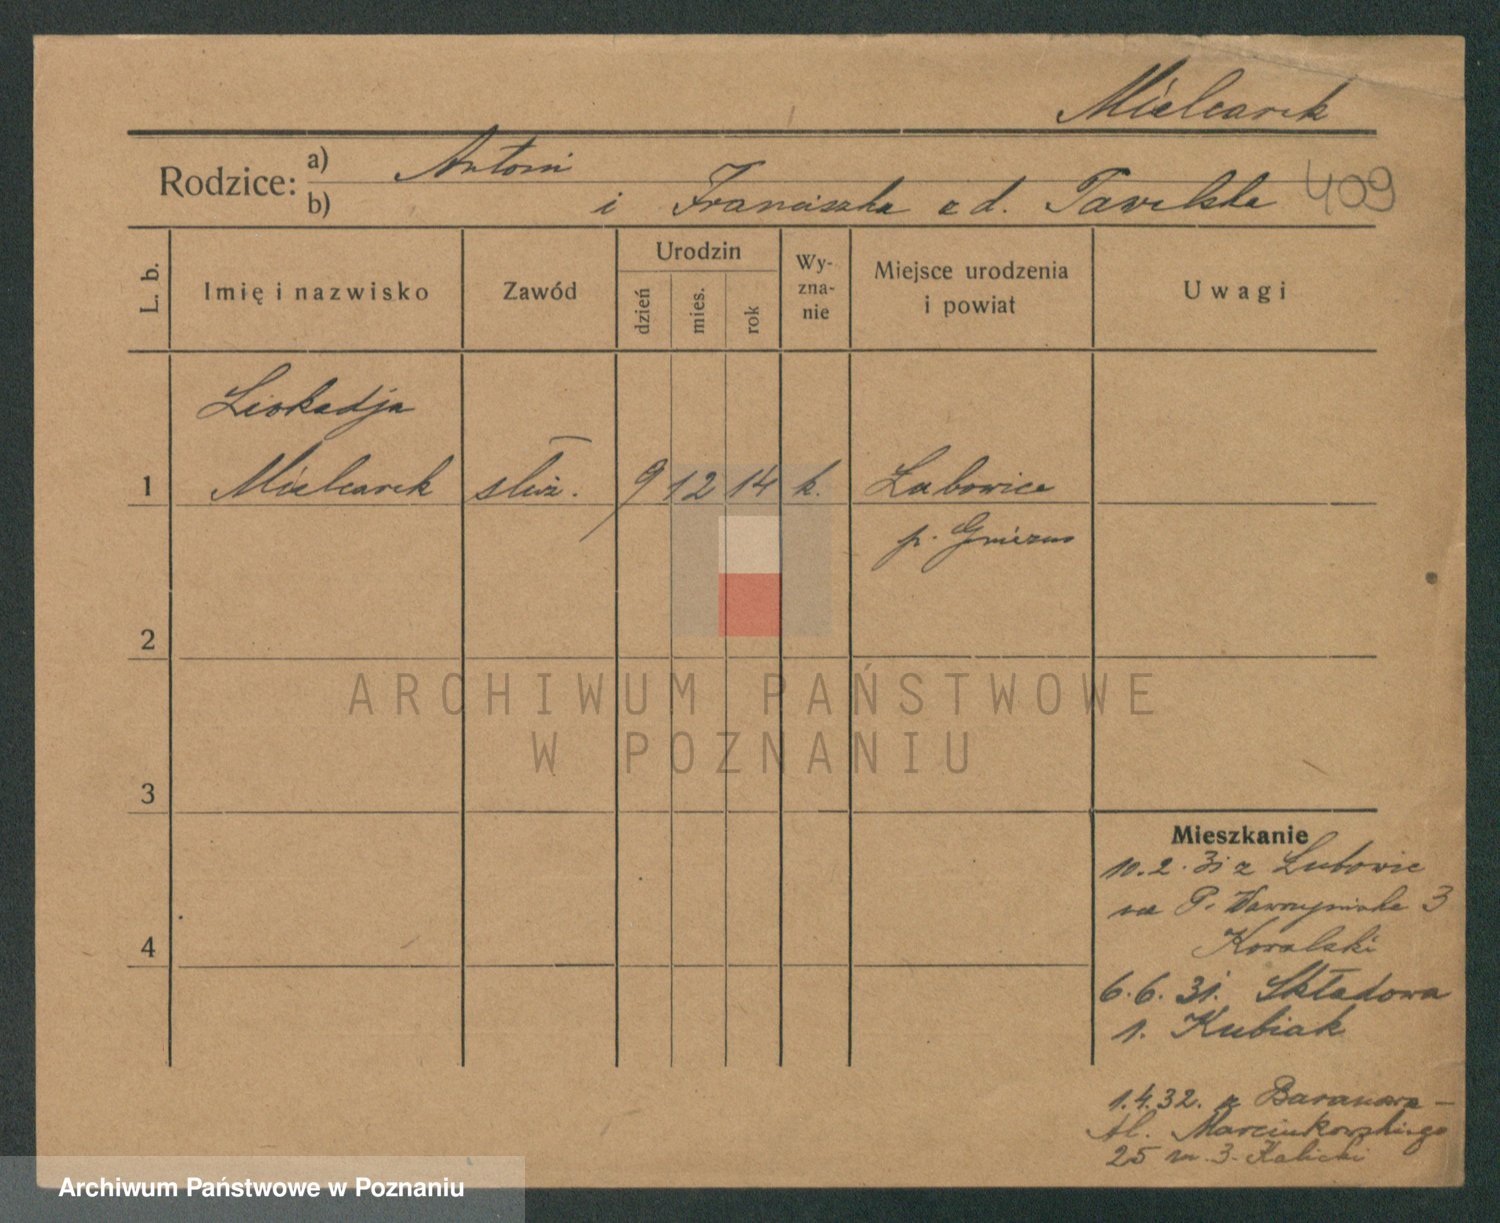 Mielcarek
Rodzice: a) Antoni
b) i Franciszka z d. Pawelska 409
L. b. Imię i nazwisko Zawód Urodzin dzień mies. rok Wy-zna-nie Miejsce urodzenia i powiat Uwagi
Leokadja
1 Mielcarek służ. 9 12 14 k. Łubowice
p. Gniezno
2
ARCHIWUM PAŃSTWOWE
W POZNANIU
3
Mieszkanie
10.2.31 z Łubowic
na P. Wawrzyniaka 3
4
Kowalski
6.6.31. Składowa
1. Kubiak
1.4.32. z Baranowa –
Al. Marcinkowskiego
25 m. 3. Kalicki
Archiwum Państwowe w Poznaniu